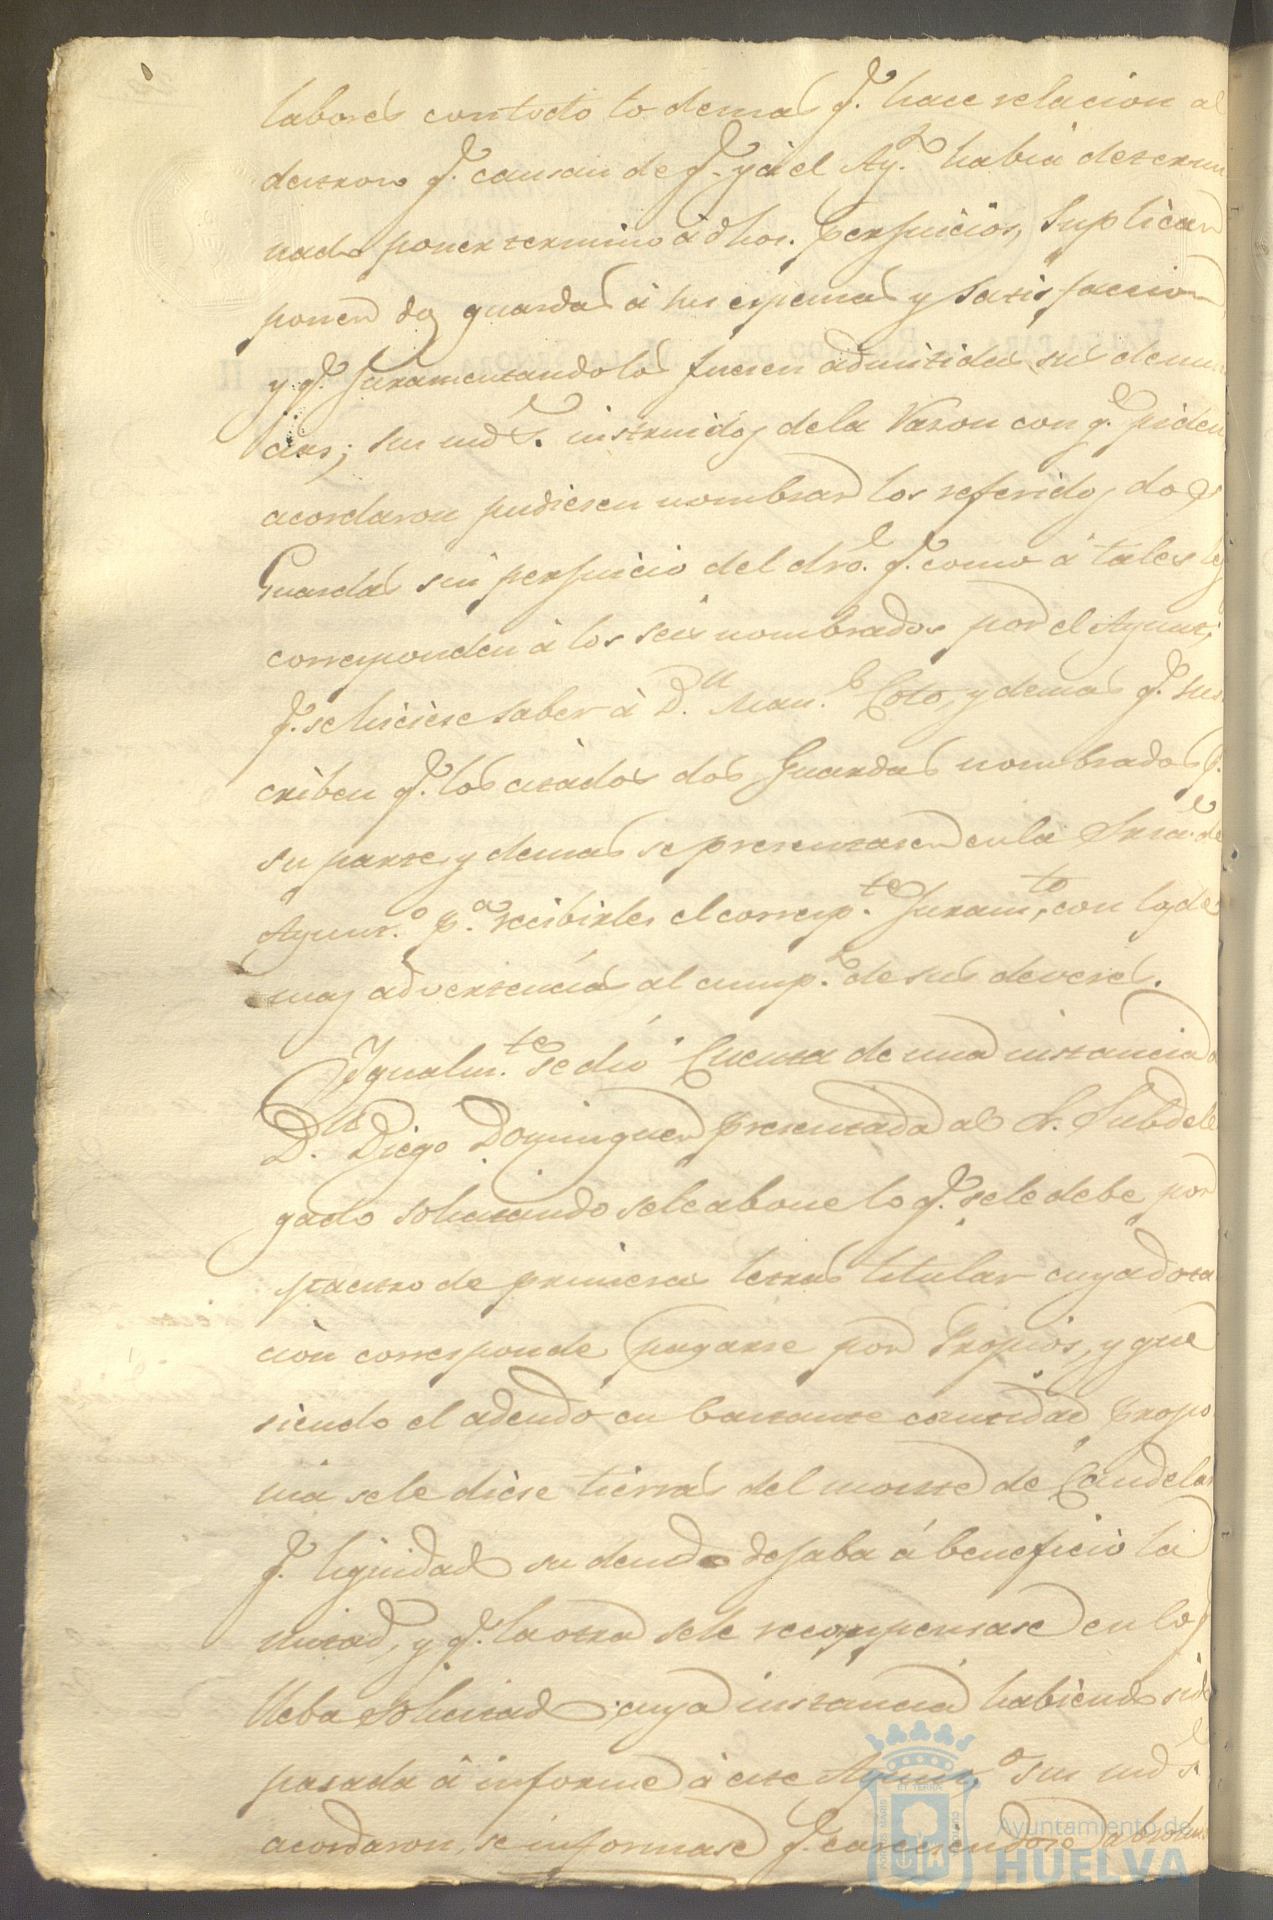 labores con todo lo demas q.e hace relacion al
destrozo q.e causan de q.e ya el Ay.to habia determi
nado poner termino á dhos. perjuicios, Suplican
poner dos guardas á sus espensas y satisfaccion
y q.e Juramentandolos fuesen admitidas sus denun
cias; sus mds. instruidos dela Razon con q.e piden
acordaron pudiesen nombrar los referidos dos
Guardas sin perjuicio del dro. q.e como á tales les
corresponden á los seis nombrados por el Ayunt.
q.e se hiciese saber á D.n Man.l Coto, y demas q.e sus
criben q.e los citados dos Guardas nombrados p.r
su parte y demas se presentasen en la Sria. de
Ayunt.o p.a recibirles el corresp.te Juram.to con las de
mas advertencias al cump.to de sus deveres.
Igualm.te se dió Cuenta de una instancia
D.n Diego Dominguez presentada al Sr. Subdele
gado solicitando sele abone lo q.e sele debe por
maestro de primeras letras titular cuya dota
ción corresponde pagarse por Propios, y que
siendo el adeudo en bastante cantidad propo
nia sele diese tierras del monte de Candelas
q.e liquidado su deudo dejaba á beneficio la
mitad, y q.e la otra sele recompensase en los
lleba solicitado, cuya instancia habiendo sido
pasada á informe á este Ayunt.o sus mds.
acordaron, se informase q.e careciendose absolu
Ayuntamiento de
HUELVA